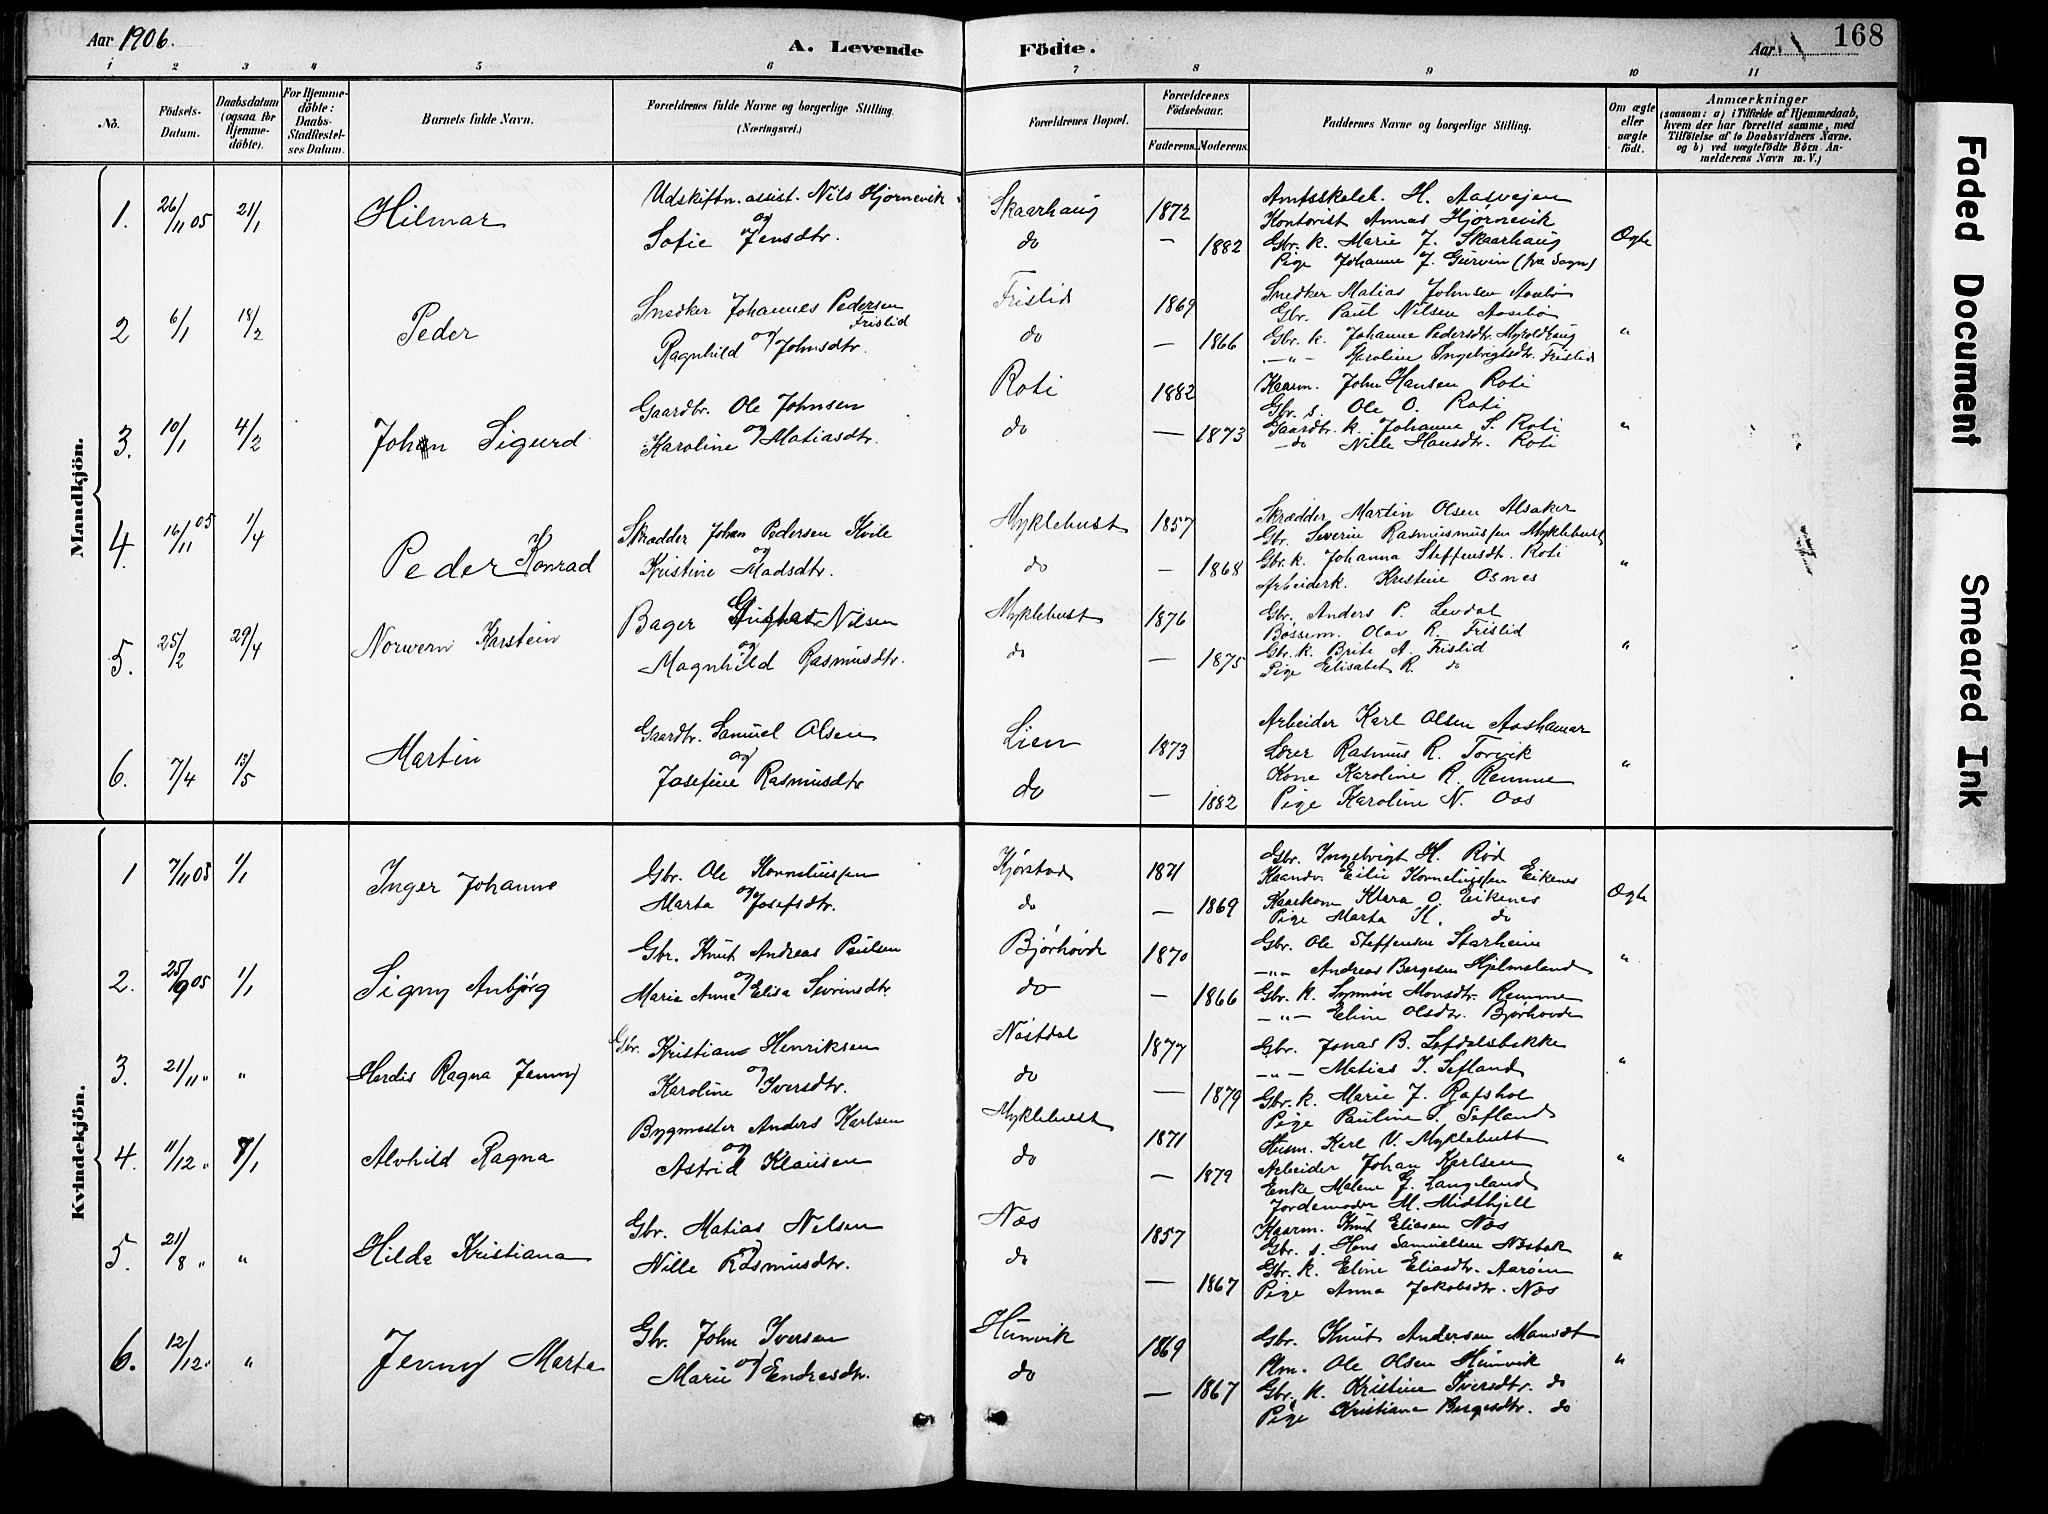 Aar 1906.
A. Levende Födte.
Aar
168
1 2 3 4 5 6 7 8 9 10 11
No.
Födsels-Datum.
Daabsdatum (ogsaa for Hjemmedöbte).
For Hjemmedöbte: Daabs-Stadfestelses Datum.
Barnets fulde Navn.
Forældrenes fulde Navne og borgerlige Stilling. (Næringsvei.)
Forældrenes Bopæl.
Forældrenes Födselsaar.
Faderens. Moderens.
Faddernes Navne og borgerlige Stilling.
Om ægte eller uægte födt.
Anmærkninger
(saasom: a) i Tilfælde af Hjemmedaab, hvem der har forrettet samme, med Tilföielse af to Daabsvidners Navne. og b) ved uægtefödte Börn Anmelderens Navn m. V.)
Mandkjön.
1. 26/11 05 21/1 Hilmar
Udskiftn. assist. Nils Hjørnevik
og
Sofie Jensdtr.
Skaarhaug 1872
do — 1882
Amtsskoleb. H. Aasvejen
Kontorist Annas Hjørnevik
Gbr. k. Marie J. Skaarhaug
Pige Johanne J. Gurvin (fra Sogn)
Ægte
2 6/1 18/2 Peder
Snedker Johannes Pedersen Fristid
og
Ragnhild Johnsdtr.
Fristid 1869
do — 1866
Snedker Matias Johnsen Aasebø
Gbr. Paul Nilsen Aasebø
Gbr. k. Johanne Pedersdtr. Myoldhaug
—"— Karoline Ingebrigtsdtr. Fristid
"
3. 10/1 4/2 Johan Sigurd
Gaardbr. Ole Johnsen
og
Karoline Matiasdtr.
Roti 1882
do — 1873
Kaarm. John Hansen Roti
Gbr. s. Ole O. Roti
Gaardbr. k. Johanne S. Roti
—do Nille Hansdtr. Roti
"
4. 16/11 05 1/4 Peder Konrad
Skrædder Johan Pedersen Kvile
og
Kristine Madsdtr.
Myklebust 1857
do — 1868
Skrædder Martin Olsen Alsaker
Gbr. Severin Rasmusmussen Myklebust
Gbr. k. Johanna Steffensdt. Roti
Arbeiderk. Kristine Osnes
"
5. 25/2 29/4 Norwern Karstein
Bager Gustav Nilsen
og
Magnhild Rasmusdtr.
Myklebust 1876
do — 1875
Gbr. Anders P. Levdal
Bøssem. Olav R. Fristid
Gbr. k. Brite A. Fristid
Pige Elisabet R. do
"
6. 7/4 13/5 Martin
Gaardbr. Samuel Olsen
og
Josefine Rasmusdtr
Lien 1873
do — 1882
Arbeider Karl Olsen Aashamar
Lærer Rasmus R. Torvik
Kone Karoline R. Remme
Pige Karoline N. Oos
"
Kvindekjön.
1 7/11 05 1/1 Inger Johanne
Gbr. Ole Korneliussen
og
Marta Josefsdtr.
Kjørstad 1871
do — 1869
Gbr. Ingebrigt H. Rød
Haandv. Eilie Korneliussen Eikenes
Kaarkone Klara O. Eikenes
Pige Marta K. do
Ægte
2. 25/9 05 1/1 Signy Anbjørg
Gbr. Knut Andreas Paulsen
og
Marie Anna Elisa Severinsdtr.
Bjørhovde 1870
do — 1866
Gbr. Ole Steffensen Starheim
—"— Andreas Bergesen Hjelmeland
Gbr. k. Synnøve Monsdtr. Remme
—"— Eline Olsdtr. Bjørhovde
"
3. 21/11 " " Herdis Ragna Jenny
Gbr. Kristian Henriksen
og
Karoline Iversdtr.
Nøstdal 1877
do — 1879
Gbr. Jonas B. Lofdalsbakke
—"— Matias I. Sefland
Gbr. k. Marie J. Rafshol
Pige Pauline S. Sefland
"
4. 11/12 " 7/1 Alvhild Ragna
Bygmester Anders Karlsen
og
Astrid Klausen
Myklebust 1871
do — 1879
Husm. Karl V. Myklebust
Arbeider Johan Karlsen
Enke Malene G. Langeland
Jordemoder M. Midthjell
"
5. 21/8 " " Hilda Kristiana
Gbr. Matias Nilsen
og
Nille Rasmusdtr.
Næs 1857
do — 1867
Kaarm. Knut Eliasen Næs
Gbr. s. Hans Samuelsen Næsbak
Gbr. k. Eline Eliasdtr. Aarøen
Pige Anna Jakobsdtr. Næs
"
6. 12/12 " " Jenny Marta
Gbr. John Iversen
og
Marie Endresdtr.
Hunvik 1869
do — 1867
Gbr. Knut Andersen Maurset
Ulm. Ole Olsen Hunvik
Gbr. k. Kristine Iversdtr. do
Pige Kristiane Bergesdtr. do
"
Faded Document
Smeared Ink